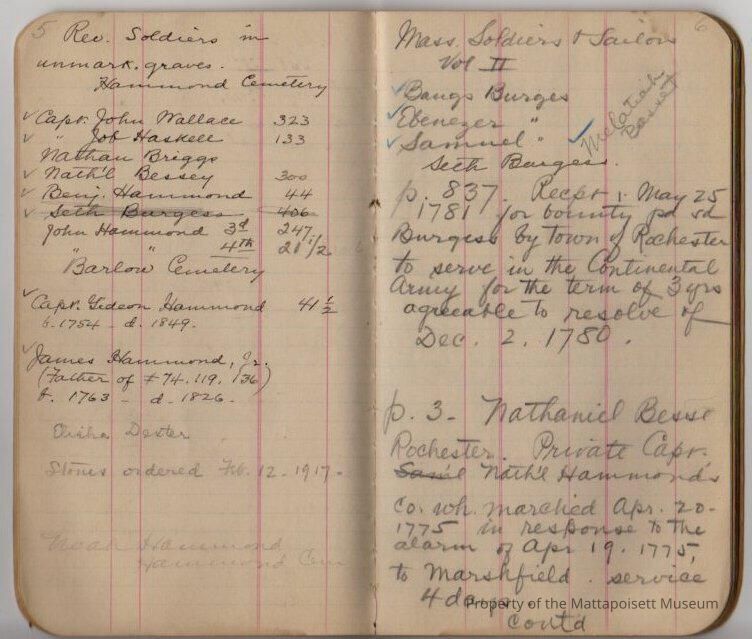 5 Rev. Soldiers in
unmark. graves.
Hammond Cemetery
✓ Capt. John Wallace 323
✓ " Job Haskell 133
Nathan Briggs
✓ Nath'l Bessey 300
✓ Benj. Hammond 44
✓ Seth Burgess 406
John Hammond 3d 247
" " 4th 20 1/2
"Barlow Cemetery
✓ Capt. Gideon Hammond 41 1/2
b. 1754 - d. 1849.
✓ James Hammond, Jr.
(Father of #74. 119. 136)
b. 1763 - d. 1826.
Elisha Dexter
Stones ordered Feb. 12 - 1917.
Noah Hammond
Hammond Cem
6
Mass. Soldiers & Sailors
Vol II
✓ Bangs Burges
✓ Ebenezer "
✓ Samuel "
✓ Melatiah
Basset
Seth Burgess.
p. 837. Recpt. May 25
1781 for bounty pd sd
Burgess by town of Rochester
to serve in the Continental
Army for the term of 3 yrs
agreeable to resolve of
Dec. 2. 1780.
p. 3 - Nathaniel Besse
Rochester. Private Capt.
Sam'l Nath'l Hammond's
Co. wh. marched Apr. 20-
1775 in response to the
alarm of Apr 19. 1775,
to Marshfield. service
4 days.
contd
Property of the Mattapoisett Museum